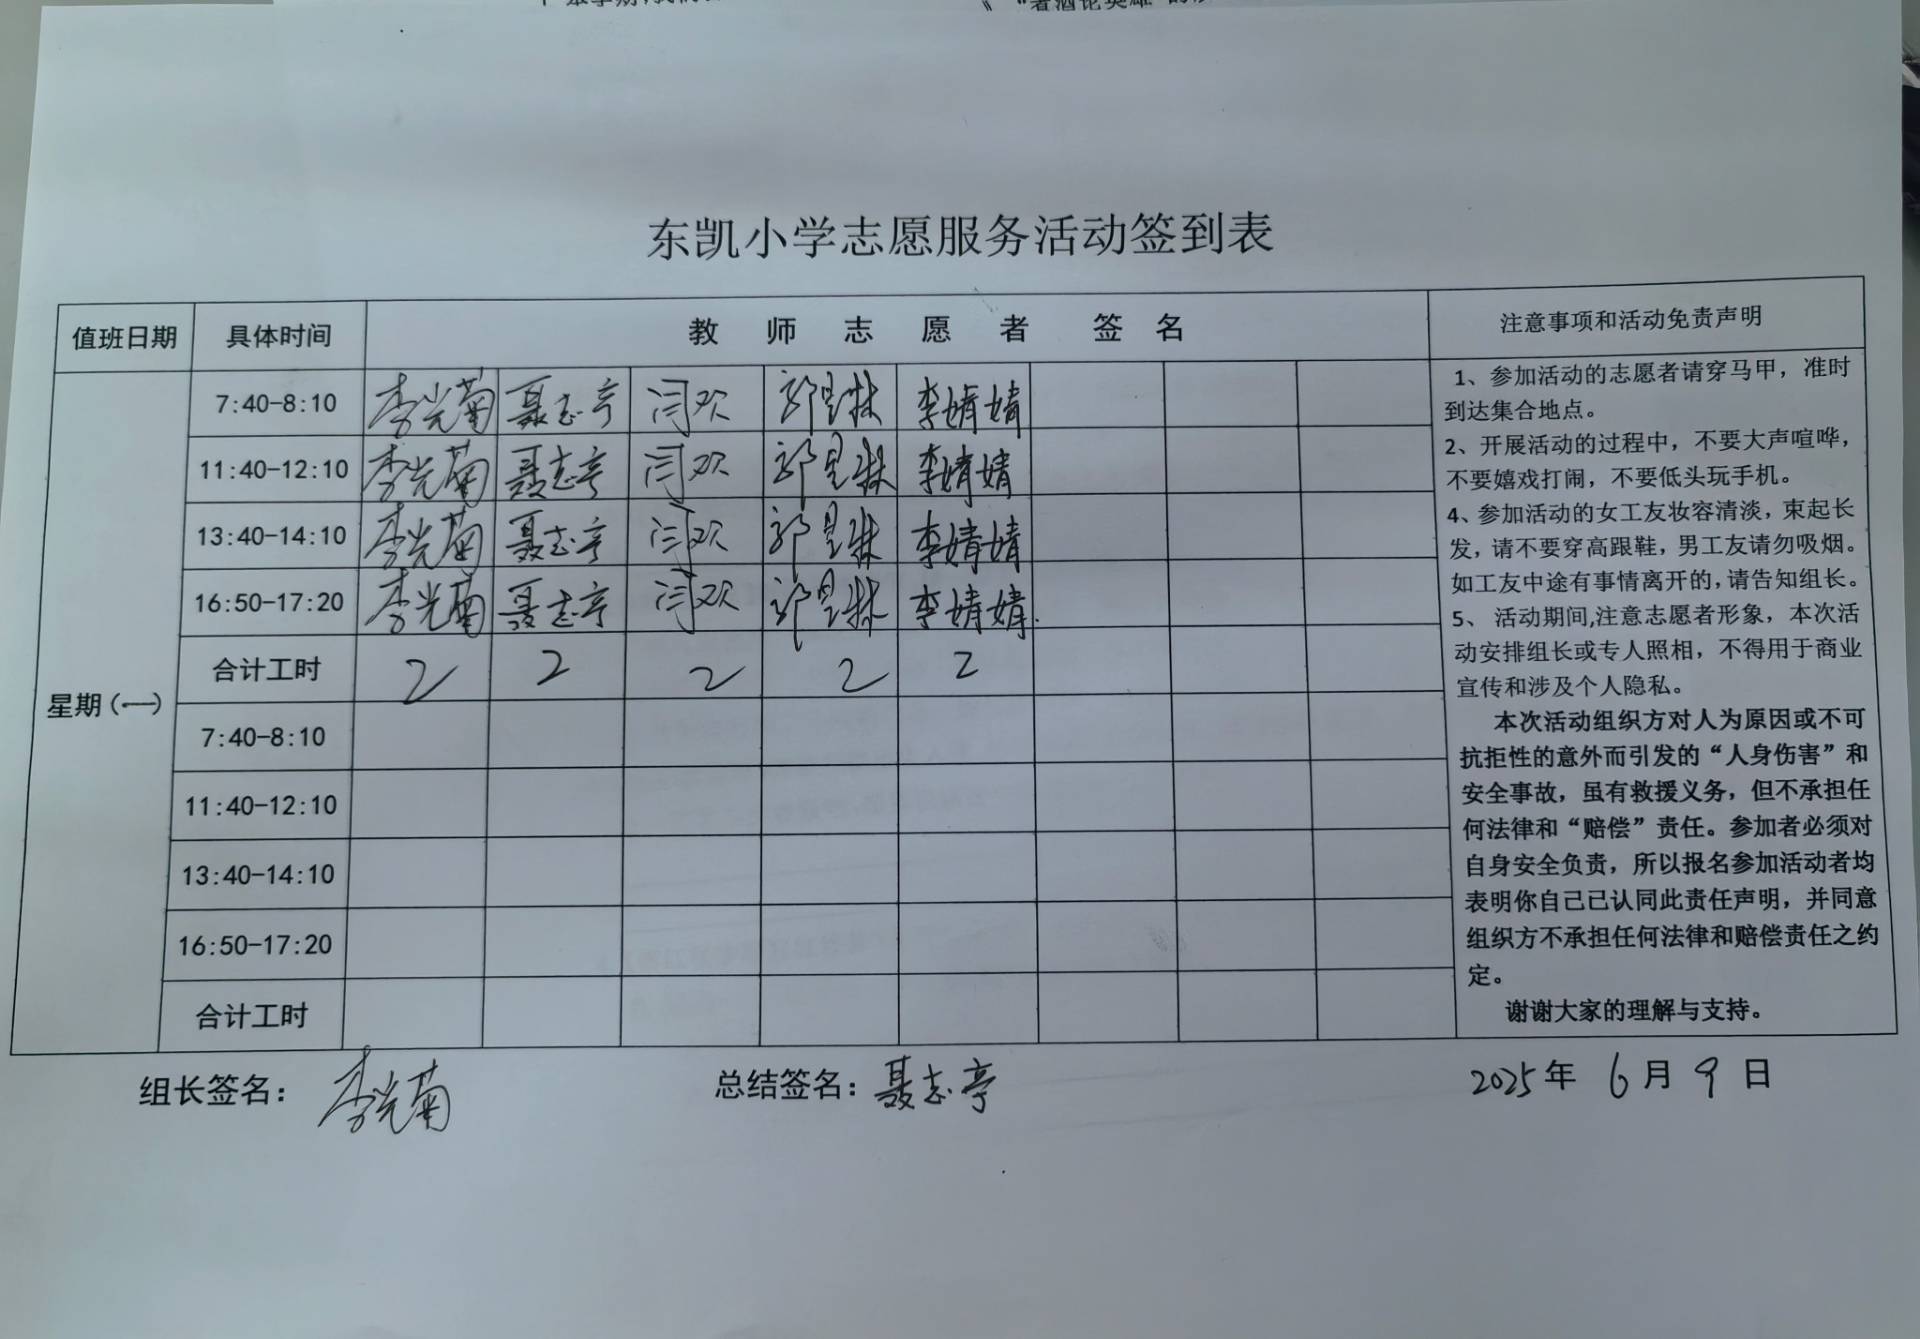 东凯小学志愿服务活动签到表
值班日期 具体时间 教师志愿者 签名 注意事项和活动免责声明
星期(一)
7:40-8:10 李光菊 聂志亭 闫欢 李婧婧
11:40-12:10 李光菊 聂志亭 闫欢 李婧婧
13:40-14:10 李光菊 聂志亭 闫欢 李婧婧
16:50-17:20 李光菊 聂志亭 闫欢 李婧婧.
合计工时 2 2 2 2 2
7:40-8:10
11:40-12:10
13:40-14:10
16:50-17:20
合计工时
1、参加活动的志愿者请穿马甲，准时
到达集合地点。
2、开展活动的过程中，不要大声喧哗，
不要嬉戏打闹，不要低头玩手机。
4、参加活动的女工友妆容清淡，束起长
发，请不要穿高跟鞋，男工友请勿吸烟。
如工友中途有事情离开的,请告知组长。
5、 活动期间,注意志愿者形象，本次活
动安排组长或专人照相，不得用于商业
宣传和涉及个人隐私。
本次活动组织方对人为原因或不可
抗拒性的意外而引发的“人身伤害”和
安全事故，虽有救援义务，但不承担任
何法律和“赔偿”责任。参加者必须对
自身安全负责，所以报名参加活动者均
表明你自己已认同此责任声明，并同意
组织方不承担任何法律和赔偿责任之约
定。
谢谢大家的理解与支持。
组长签名：李光菊 总结签名：聂志亭 2025年 6月 9日